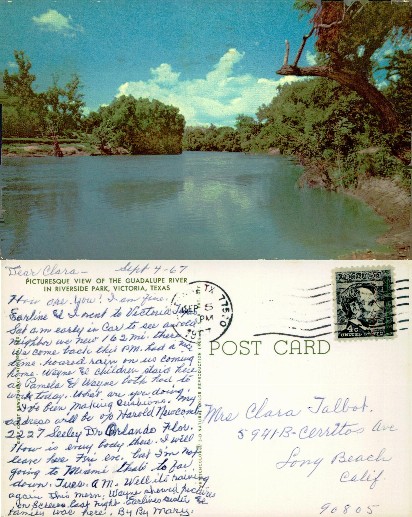 Dear Clara - Sept 4-67
PICTURESQUE VIEW OF THE GUADALUPE RIVER
IN RIVERSIDE PARK, VICTORIA, TEXAS
How are you? I am fine.
Earline & I went to Victoria Tex
Sat a.m. early in Car to see an old
Neighbor we new 162 mi. there
we come back this P.M. had a nice
time. hoard rain on us coming
home. Wayne & children staid here
as Pamela & Wayne both had to
work today. What are you doing.
I've bin making cushions. My
address will be % Harold Newcomb
2227 Seeley Dr Orlando Flor.
How is every body there. I will
leave here Fri. eve. but I'm not
going to Miami thats to far
down. Tues. A.M. Well its raining
again this morn. Wayne showed pictures
on Screen last night. Earlines sister &
family was here. By By Mary.
TX 77570
SEP 5
PM
1967
4c
UNITED STATES
POST CARD
Mrs Clara Talbot.
5941B-Cerritos Ave
Long Beach
Calif.
90805